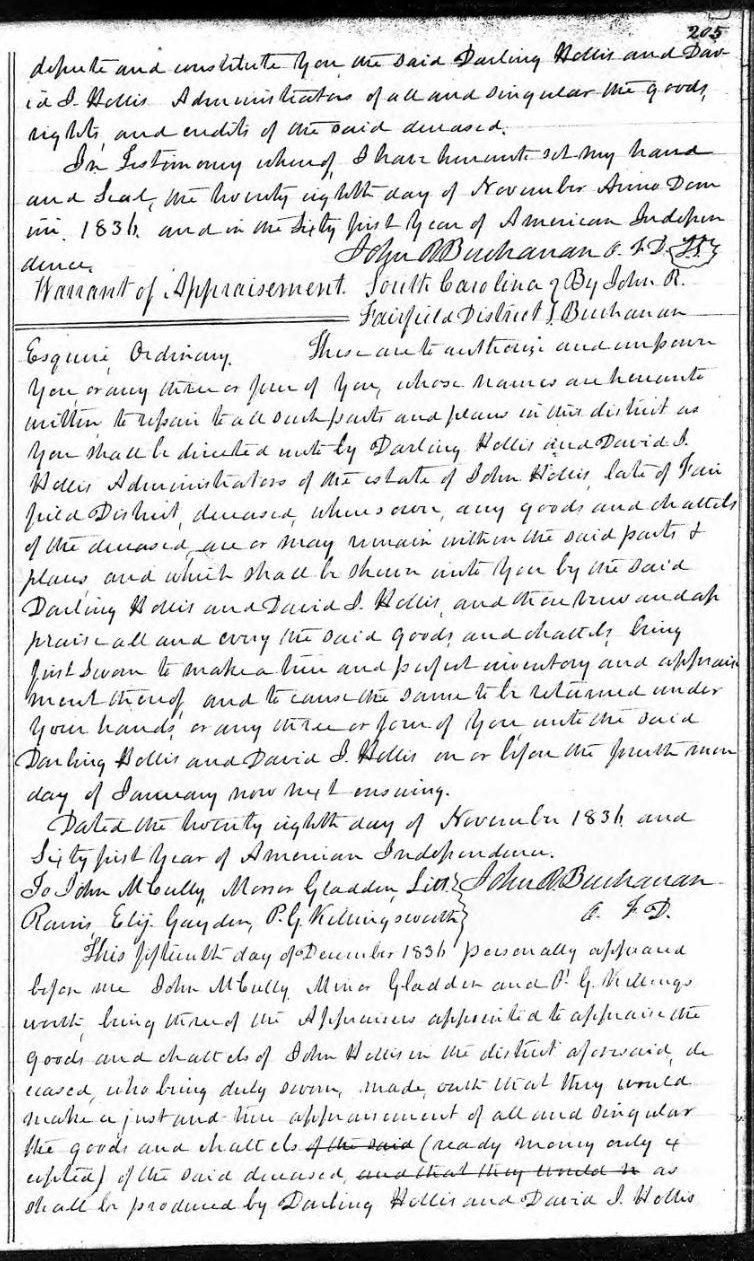 205
depute and constitute you the said Darling Hollis and Dav
id J. Hollis Administrators of all and singular the goods,
rights, and credits of the said deceased.
In Testimony whereof, I have hereunto set my hand
and Seal, the twenty eighth day of November Anno Dom
ini 1836. and in the Sixty first Year of American Indepen
dence. John R Buchanan O. F. D. L.S.
Warrant of Appraisement. South Carolina } By John R.
Fairfield District } Buchanan
Esquire, Ordinary. These are to authorize and empower
you, or any three or four of you, whose names are hereunto
written, to repair to all such parts and places in this district as
you shall be directed unto by Darling Hollis and David J.
Hollis Administrators of the estate of John Hollis, late of Fair
field District, deceased, wheresoever, any goods and chattels
of the deceased, are or may remain within the said parts &
places, and which shall be shewn unto you by the said
Darling Hollis and David J. Hollis, and then view and ap
praise all and every the said goods and chattels, being
first sworn to make a true and perfect inventory and appraise
ment thereof, and to cause the same to be returned under
your hands, or any three or four of you, unto the said
Darling Hollis and David J. Hollis on or before the fourth mon
day of January now next ensuing.
Dated the twenty eighth day of November 1836 and
Sixty first Year of American Independence.
To John McCully, Minor Gladden, } John R Buchanan
Elij. Gayden, P. G. Killingsworth } O. F. D.
This fifteenth day of December 1836 personally appeared
before me John McCully, Minor Gladden and P. G. Killings
worth, being three of the Appraisers appointed to appraise the
goods and chattels of John Hollis in the district aforesaid, de
ceased, who being duly sworn, made oath that they would
make a just and true appraisement of all and singular
the goods and chattels of the said (ready money only ex
cepted) of the said deceased, and that they would as
shall be produced by Darling Hollis and David J. Hollis